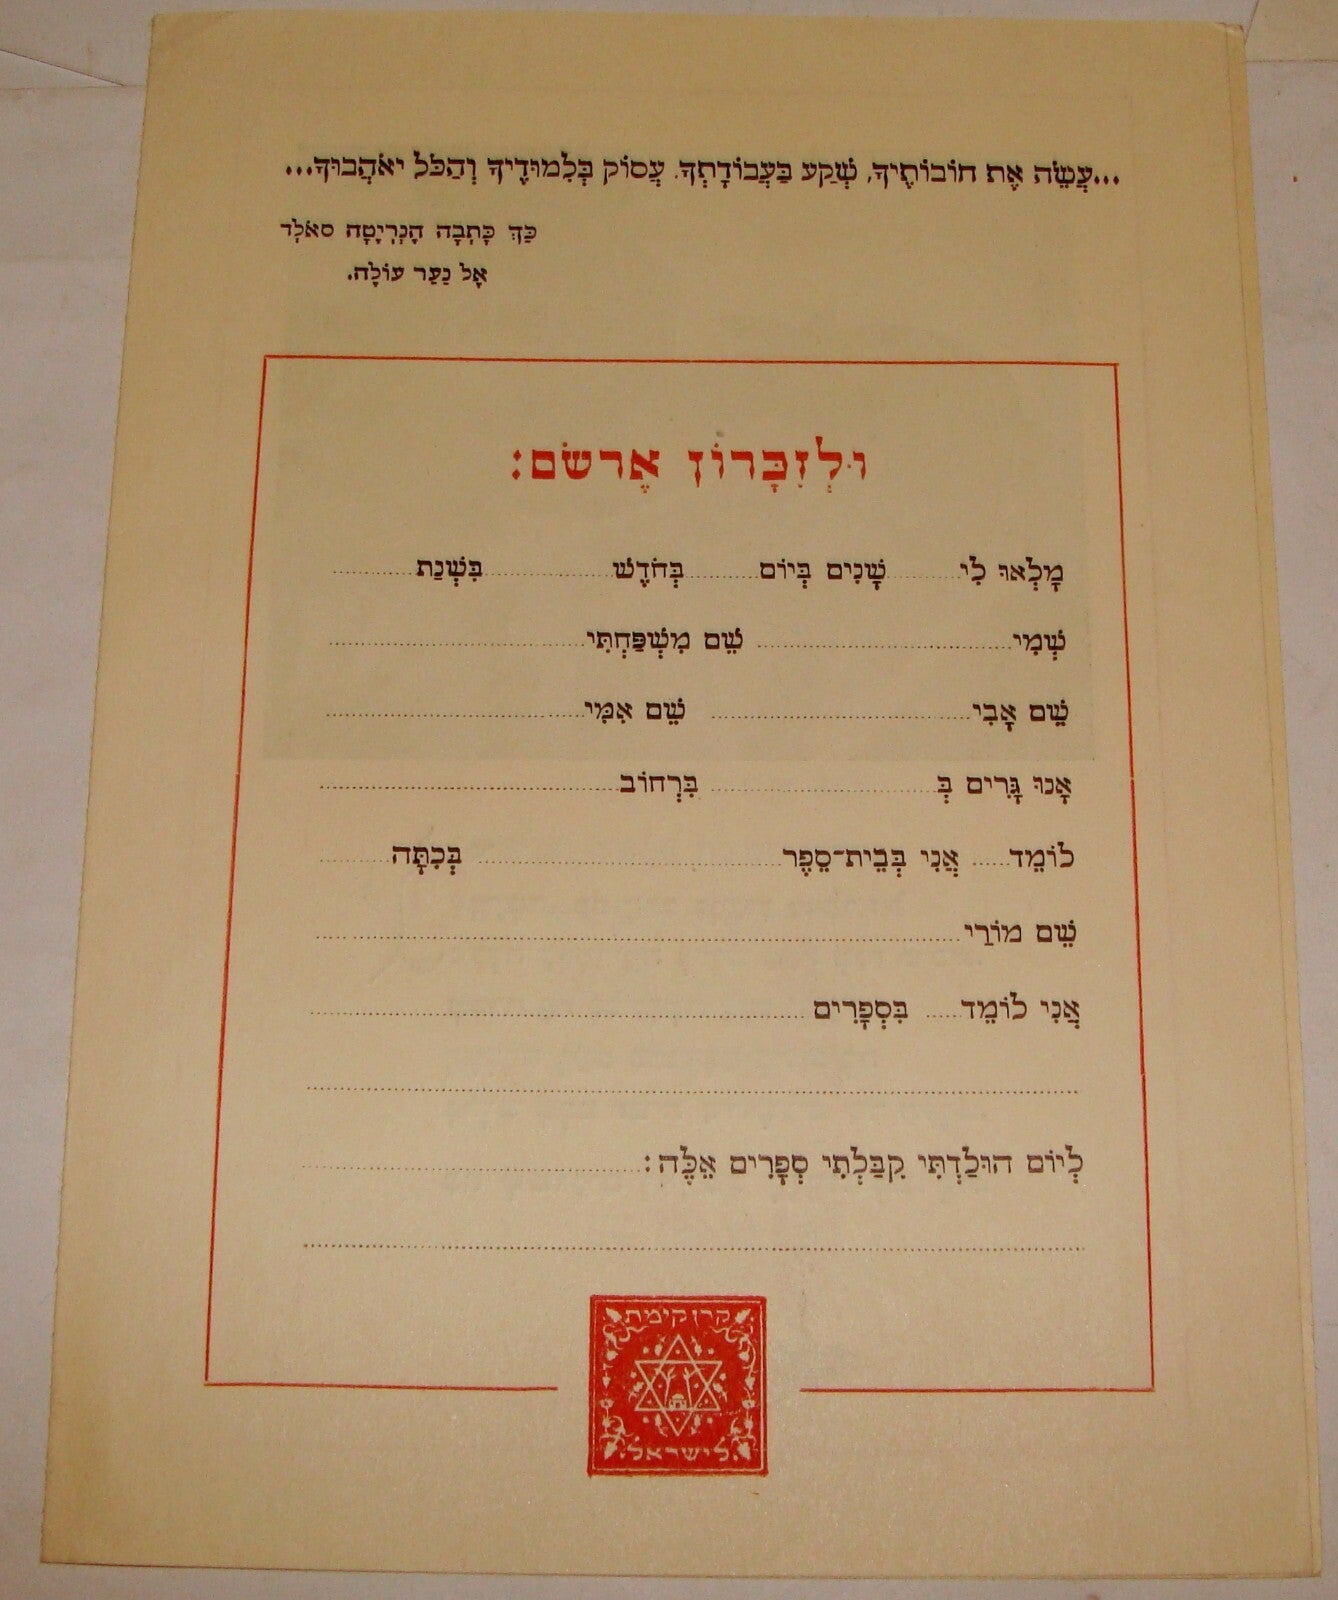 ...עֲשֵׂה אֶת חוֹבוֹתֶיךָ, שְׁקַע בַּעֲבוֹדָתְךָ. עֲסוֹק בְּלִמוּדֶיךָ וְהַכֹּל יֹאהֲבוּךָ...
כַּךְ כָּתְבָה הֶנְרִיֶטָה סאֹלְד
אֶל נַעַר עוֹלֶה.
וּלְזִכָּרוֹן אֶרשֹׁם:
מָלְאוּ לִי........שָׁנִים בְּיוֹם........בְּחֹדֶשׁ............בִּשְׁנַת............
שְׁמִי............................ שֵׁם מִשְׁפַּחְתִּי............................
שֵׁם אָבִי............................ שֵׁם אִמִּי............................
אָנוּ גָּרִים בְּ........................ בִּרְחוֹב................................
לוֹמֵד..... אֲנִי בְּבֵית־סֵפֶר................................ בְּכִתָּה........
שֵׁם מוֹרַי......................................................................
אֲנִי לוֹמֵד..... בִּסְפָרִים............................................
................................................................................
לְיוֹם הוּלַדְתִּי קִבַּלְתִּי סְפָרִים אֵלֶּה:....................................
................................................................................
קרן קימת
לישראל